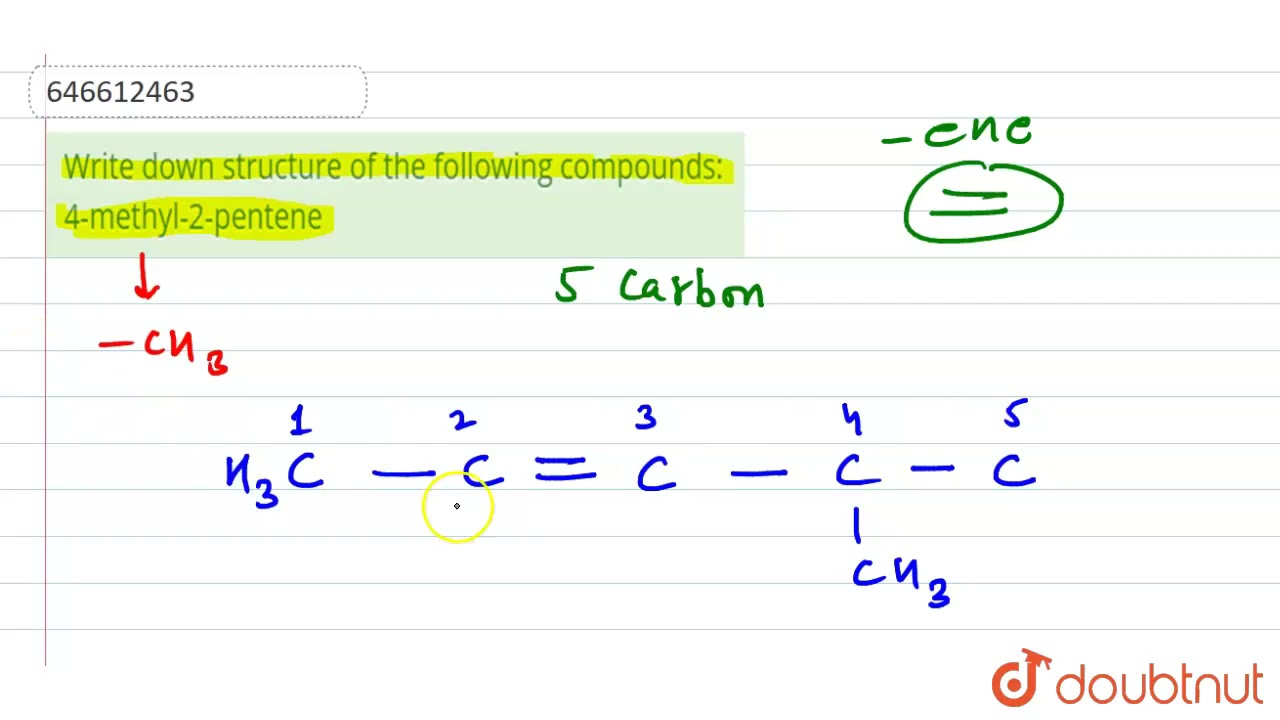 646612463
Write down structure of the following compounds:
4-methyl-2-pentene
-ene
=
5 Carbon
-CH3
1 2 3 4 5
H3C - C = C - C - C
|
CH3
doubtnut